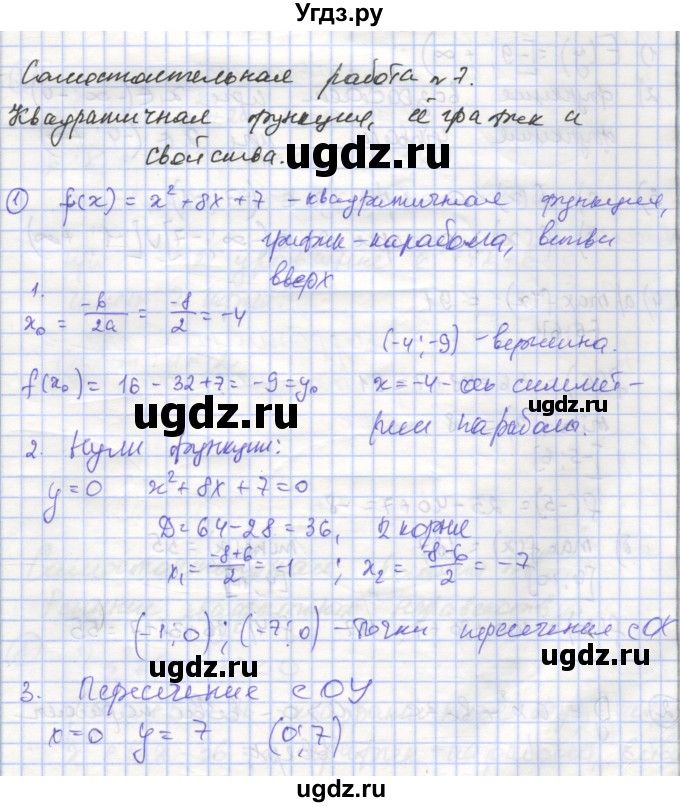 Угдз.ру
Самостоятельная работа №7.
Квадратичная функция, её график и
свойства.
ugdz.ru
① f(x) = x² + 8x + 7 – квадратичная функция,
график – парабола, ветви
вверх
1.
x₀ = -b/2a = -8/2 = -4
(-4; -9) – вершина.
f(x₀) = 16 - 32 + 7 = -9 = y₀
x = -4 – ось симмет-
ugdz.ru
рии параболы.
2. Нули функции:
y = 0 x² + 8x + 7 = 0
D = 64 - 28 = 36, 2 корня
ugdz.ru
x₁ = -8+6/2 = -1 ; x₂ = -8-6/2 = -7
(-1; 0) ; (-7; 0) – точки пересечения с OX
ugdz.ru
3. Пересечение с OY
x = 0 y = 7 (0; 7)
ugdz.ru